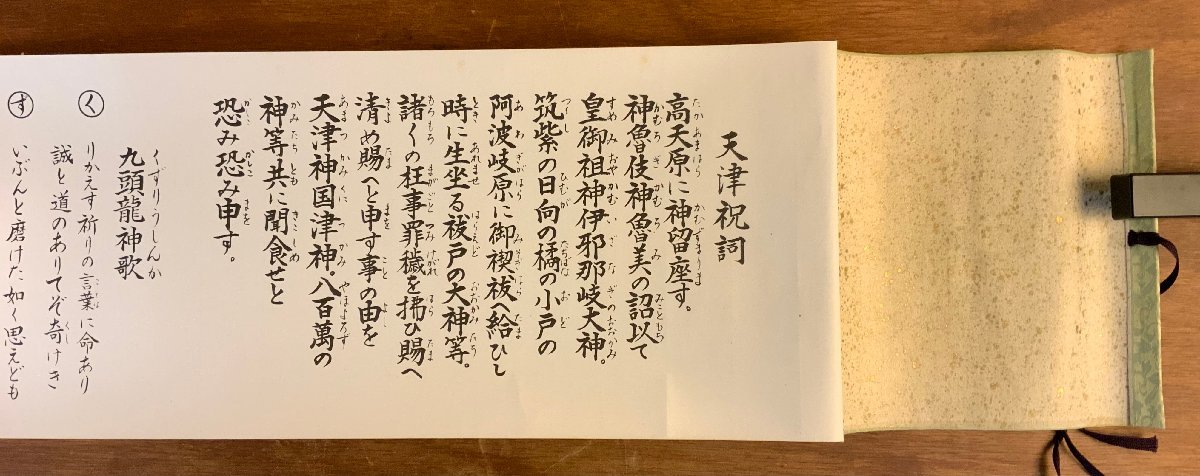 天津祝詞
高天原に神留座す。
神魯伎神魯美の詔以て
皇御祖神伊邪那岐大神。
筑紫の日向の橘の小戸の
阿波岐原に御禊祓へ給ひし
時に生坐る祓戸の大神等。
諸々の枉事罪穢を拂ひ賜へ
清め賜へと申す事の由を
天津神国津神。八百萬の
神等共に聞食せと
恐み恐み申す。
九頭龍神歌
く りかえす祈りの言葉に命あり
誠と道のありてぞ奇けき
す いぶんと磨けた如く思えども